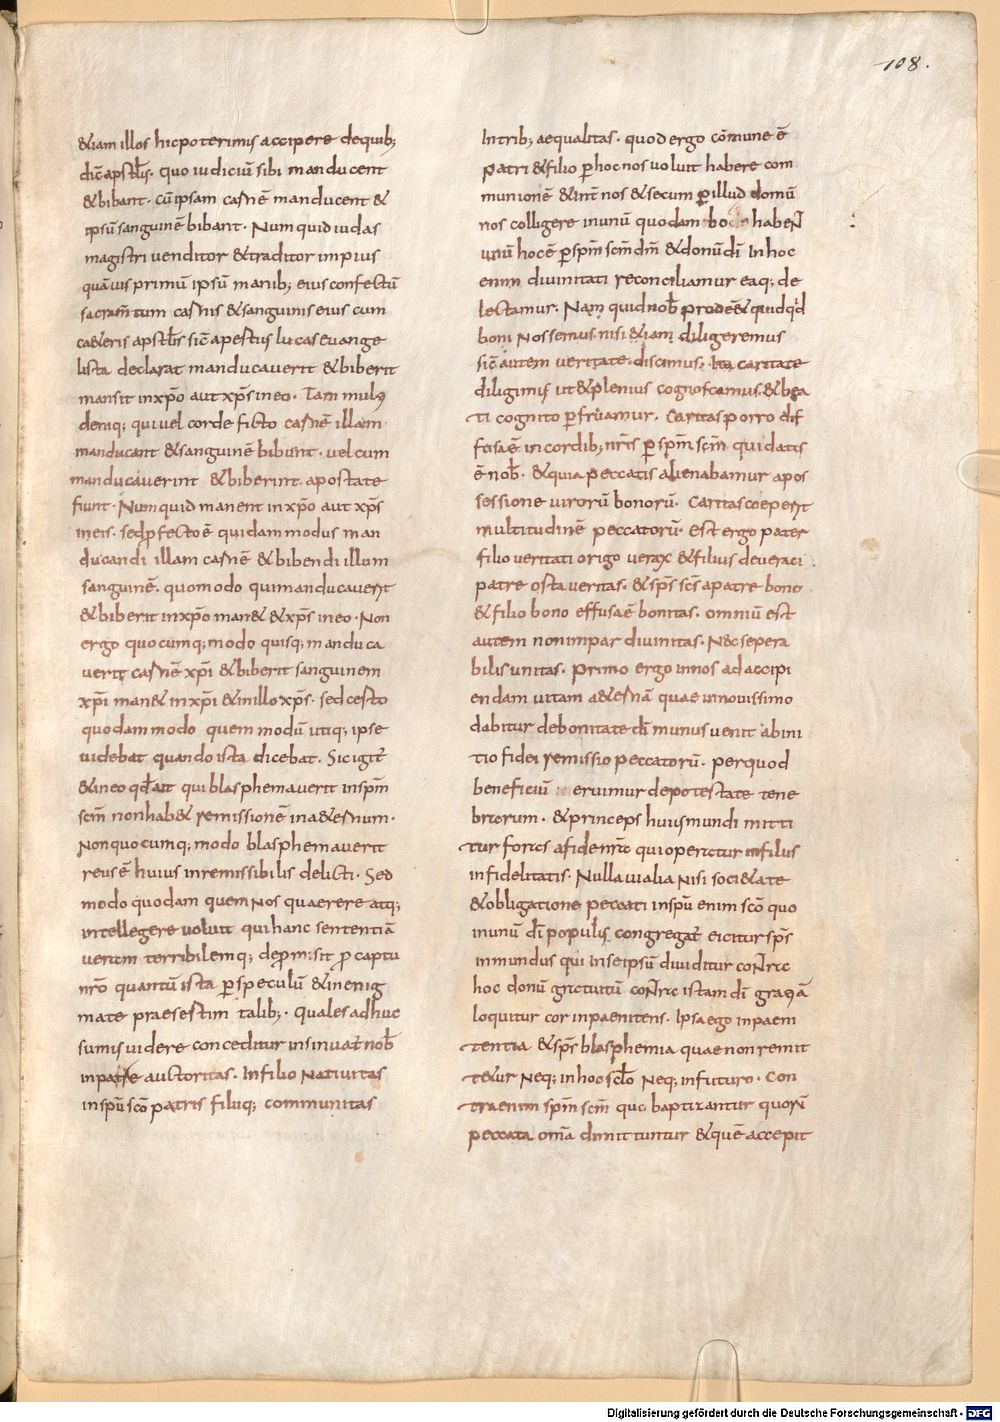 108.
&iam illos hic poterimus accipere dequib;
dic̄ apstl̄s. quo iudiciū sibi manducent
& bibant. cū ipsam carnē manducent &
ipsū sanguinē bibant. Numquid iudas
magistri venditor & traditor impius
quāuis primū ipsū manib; eius confectū
sacram̄tum carnis & sanguinis eius cum
cae&eris apstl̄is sic̄ apertius lucas evange
lista declarat manducaverit & biberit
mansit in xp̄o aut xp̄s in eo. Tam multi
deniq; qui vel corde ficto carnē illam
manducant & sanguinē bibunt. vel cum
manducaverint & biberint. apostate
fiunt. Numquid manent in xp̄o aut xp̄s
in eis. sed p̄fecto ē quidam modus man
ducandi illam carnē & bibendi illum
sanguinē. quomodo qui manducaverit
& biberit in xp̄o man& & xp̄s in eo. Non
ergo quocumq; modo quisq; manduca
verit carnē xp̄i & biberit sanguinem
xp̄i man& in xp̄i & in illo xp̄s. sed certo
quodam modo quem modū utiq; ipse
videbat quando ista dicebat. Sic igit̄
& in eo qd̄ ait qui blasphemaverit in sp̄m
sc̄m non hab& remissionē in a&ernum.
Non quocumq; modo blasphemaverit
reus ē huius inremissibilis delicti. Sed
modo quodam quem nos quaerere atq;
intellegere voluit qui hanc sententiā
veram terribilemq; deprmisit p̄ captu
nr̄o quantū ista p̄ speculū & in enig
mate praesertim talib;. quales adhuc
sumus videre conceditur insinuat̄ nob̄
in patre auctoritas. In filio Nativitas
in sp̄u sc̄o patris filiiq; communitas
In trib; aequalitas. quod ergo cōmune ē
patri & filio p̄ hoc nos voluit habere com
munionē & int̄ nos & secum p̄ illud domū
nos colligere in unū quodam bo habeN̄
unū hoc ē p̄ sp̄m sc̄m dm̄ & donū dī In hoc
enim divinitati reconciliamur eaq; de
lectamur. Nam quid nob̄ prodess& quidq̄d
boni Nossemus nisi &iam diligeremus
sic̄ autem veritate discimus. Ita caritate
diligimus ut & plenius cognoscamus. & bea
ti cognito p̄fruamur. Caritas porro dif
fusa ē in cordib; nr̄is p̄ sp̄m sc̄m qui datis
ē nob̄. & quia peccatis alienabamur a pos
sessione virorū bonorū. Caritas cooperit
multitudinē peccatorū. Est ergo pater
filio veritati origo verax & filius de veraci
patre orta veritas. & sp̄s sc̄s a patre bono
& filio bono effusa ē bonitas. omniū est
autem non impar divinitas. Nec sepera
bilis unitas. primo ergo in nos ad accipi
endam vitam a&ernā quae in novissimo
dabitur de bonitate dī munus venit ab ini
tio fidei remissio peccatorū. per quod
beneficiū eruimur de potestate tene
brarum. & princeps huius mundi mitti
tur foras a fide nr̄ae qui operatur in filiis
infidelitatis. Nulla vi alia Nisi soci&ate
& obligatione peccati in spū enim sc̄o quo
in unū dī populus congregat̄ eicitur sp̄s
inmundus qui in se ipsū dividitur coN̄rae
hoc donū gratuitū coN̄rae istam dī gratiā
loquitur cor inpaenitens. Ipsa ego inpaeni
tentia & sp̄s blasphemia quae non remit
t&ur Neq; in hoc sclo Neq; in futuro. Con
tra enim sp̄m sc̄m quo baptizantur quorū
peccata om̄a dimittuntur & quē accepit
Digitalisierung gefördert durch die Deutsche Forschungsgemeinschaft - DFG